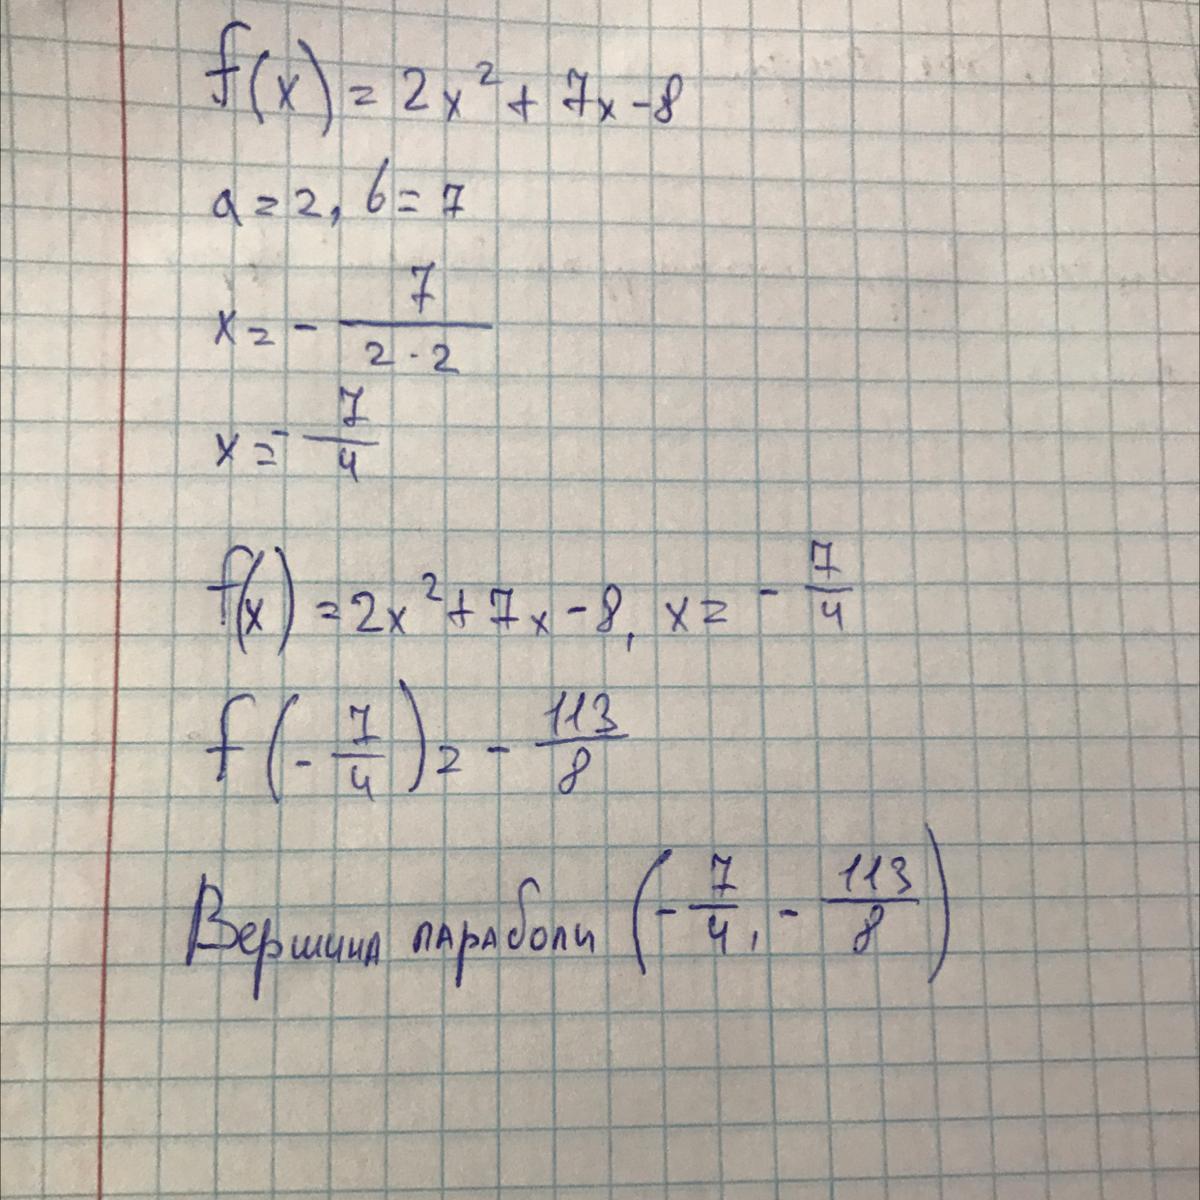 f(x) = 2x² + 7x - 8
a = 2, b = 7
x = - 7/(2·2)
x = - 7/4
f(x) = 2x² + 7x - 8, x = - 7/4
f(- 7/4) = - 113/8
Вершина параболи (- 7/4, - 113/8)